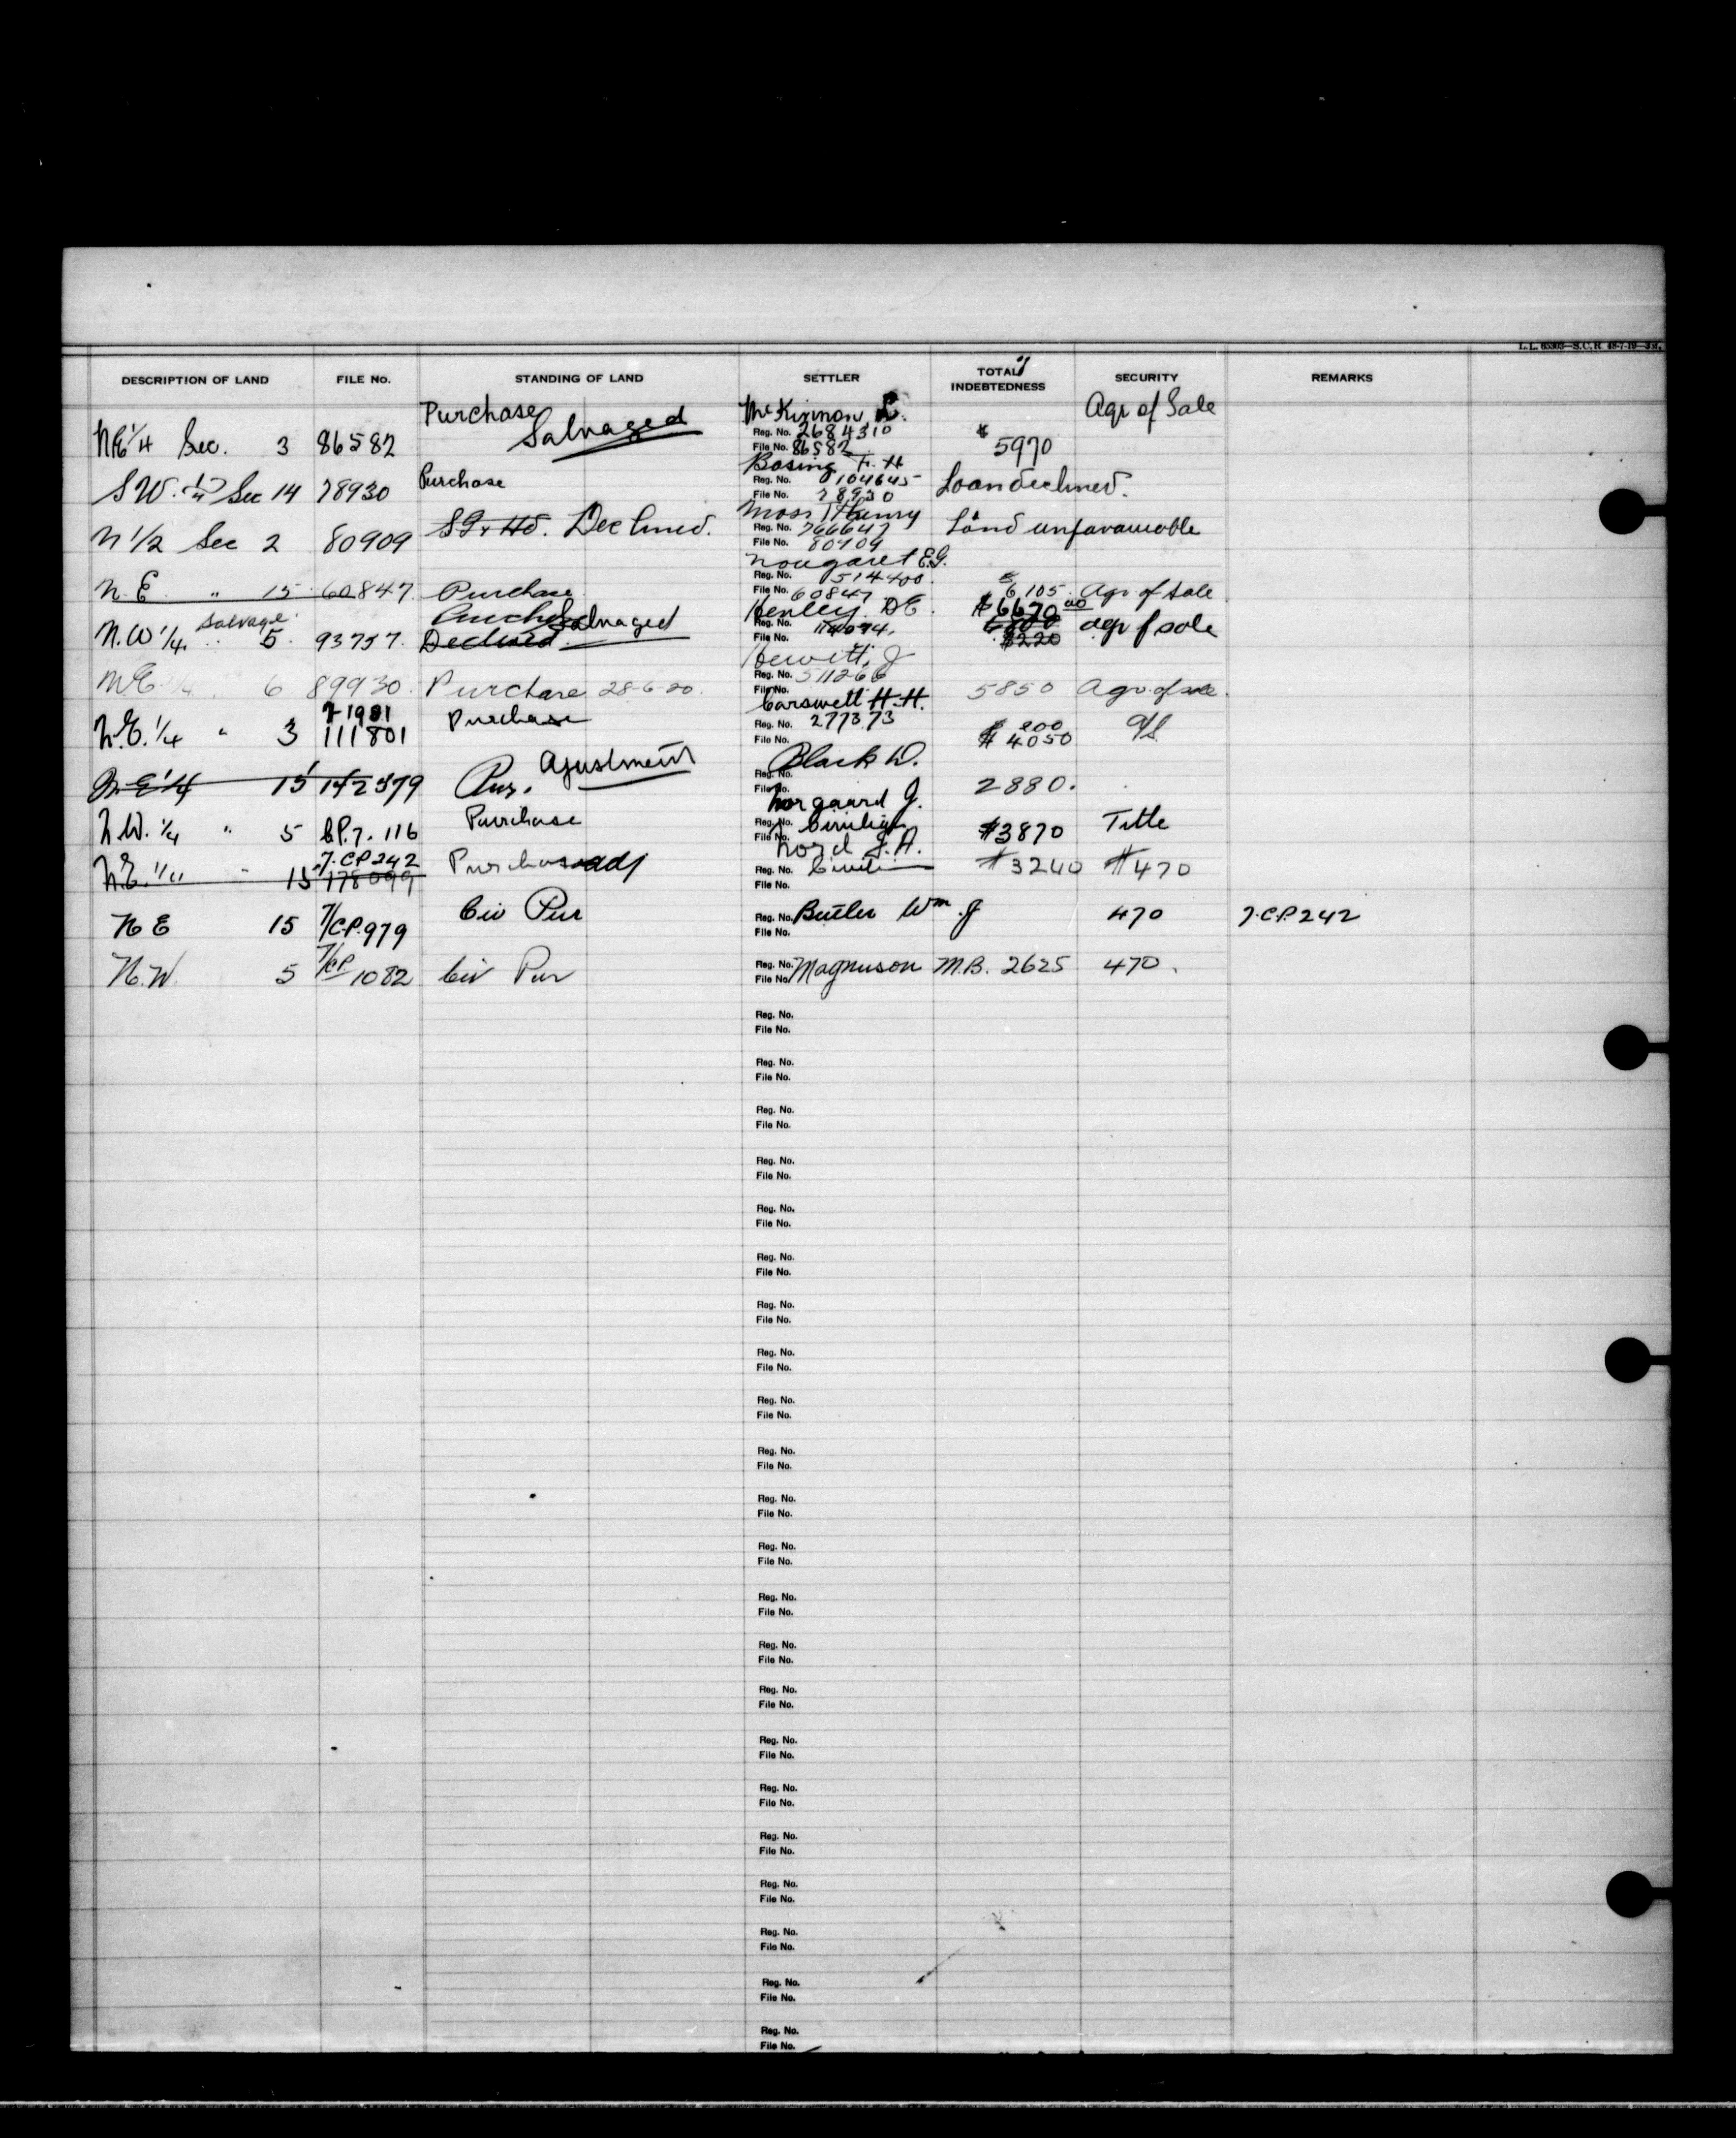 L. L. 65303—S.C.R. 48-7-19—3 st.
DESCRIPTION OF LAND FILE No. STANDING OF LAND SETTLER TOTAL INDEBTEDNESS SECURITY REMARKS
Purchase McKinnon Agr of Sale
NE 1/4 Sec. 3 86582 Salvaged Reg. No. 2684310 $ 5970
File No. 86582
Purchase Bosing F. H
S W. 1/4 Sec 14 78930 Reg. No. 0104645 Loan declined.
File No. 78930
S.G. + Hd. Declined. Moss Henry
N 1/2 Sec 2 80909 Reg. No. 766647 Land unfavourable
File No. 80909
Nougaret E.G.
Reg. No. 514400
N. E. " 15 60847 Purchase File No. 60847 6105 Agr of sale
Salvage Purchase Salvaged Henley D E. $6670.00
N.W 1/4 " 5 93757 Declined Reg. No. 114074 agr of sale
File No. $220
Hewitt, J
N E 1/4 6 89930 Purchase 28-6-20. Reg. No. 511266 5850 Agr. of sale
File No.
7-1981 Purchase Carswell H.H.
N.E. 1/4 " 3 111801 Reg. No. 277373 $ 200
File No. $ 4050 A/S
Ajustment Black W.
N E 1/4 15 142379 Pur. Reg. No. 2880.
File No.
Purchase Norgaard J.
N.W. 1/4 " 5 C.P. 7. 116 Reg. No. Civilian $3870 Title
File No.
7.C.P 242 Purchase adj Nord J. A.
N.E. 1/4 " 15 178099 Reg. No. Civili $3240 $470
File No.
N E 15 7/C.P. 979 Civ Pur Reg. No. Butler Wm. J 470 7.C.P. 242
File No.
N. W. 5 7/CP 1082 Civ Pur Reg. No. Magnuson M.B. 2625 470.
File No.
Reg. No.
File No.
Reg. No.
File No.
Reg. No.
File No.
Reg. No.
File No.
Reg. No.
File No.
Reg. No.
File No.
Reg. No.
File No.
Reg. No.
File No.
Reg. No.
File No.
Reg. No.
File No.
Reg. No.
File No.
Reg. No.
File No.
Reg. No.
File No.
Reg. No.
File No.
Reg. No.
File No.
Reg. No.
File No.
Reg. No.
File No.
Reg. No.
File No.
Reg. No.
File No.
Reg. No.
File No.
Reg. No.
File No.
Reg. No.
File No.